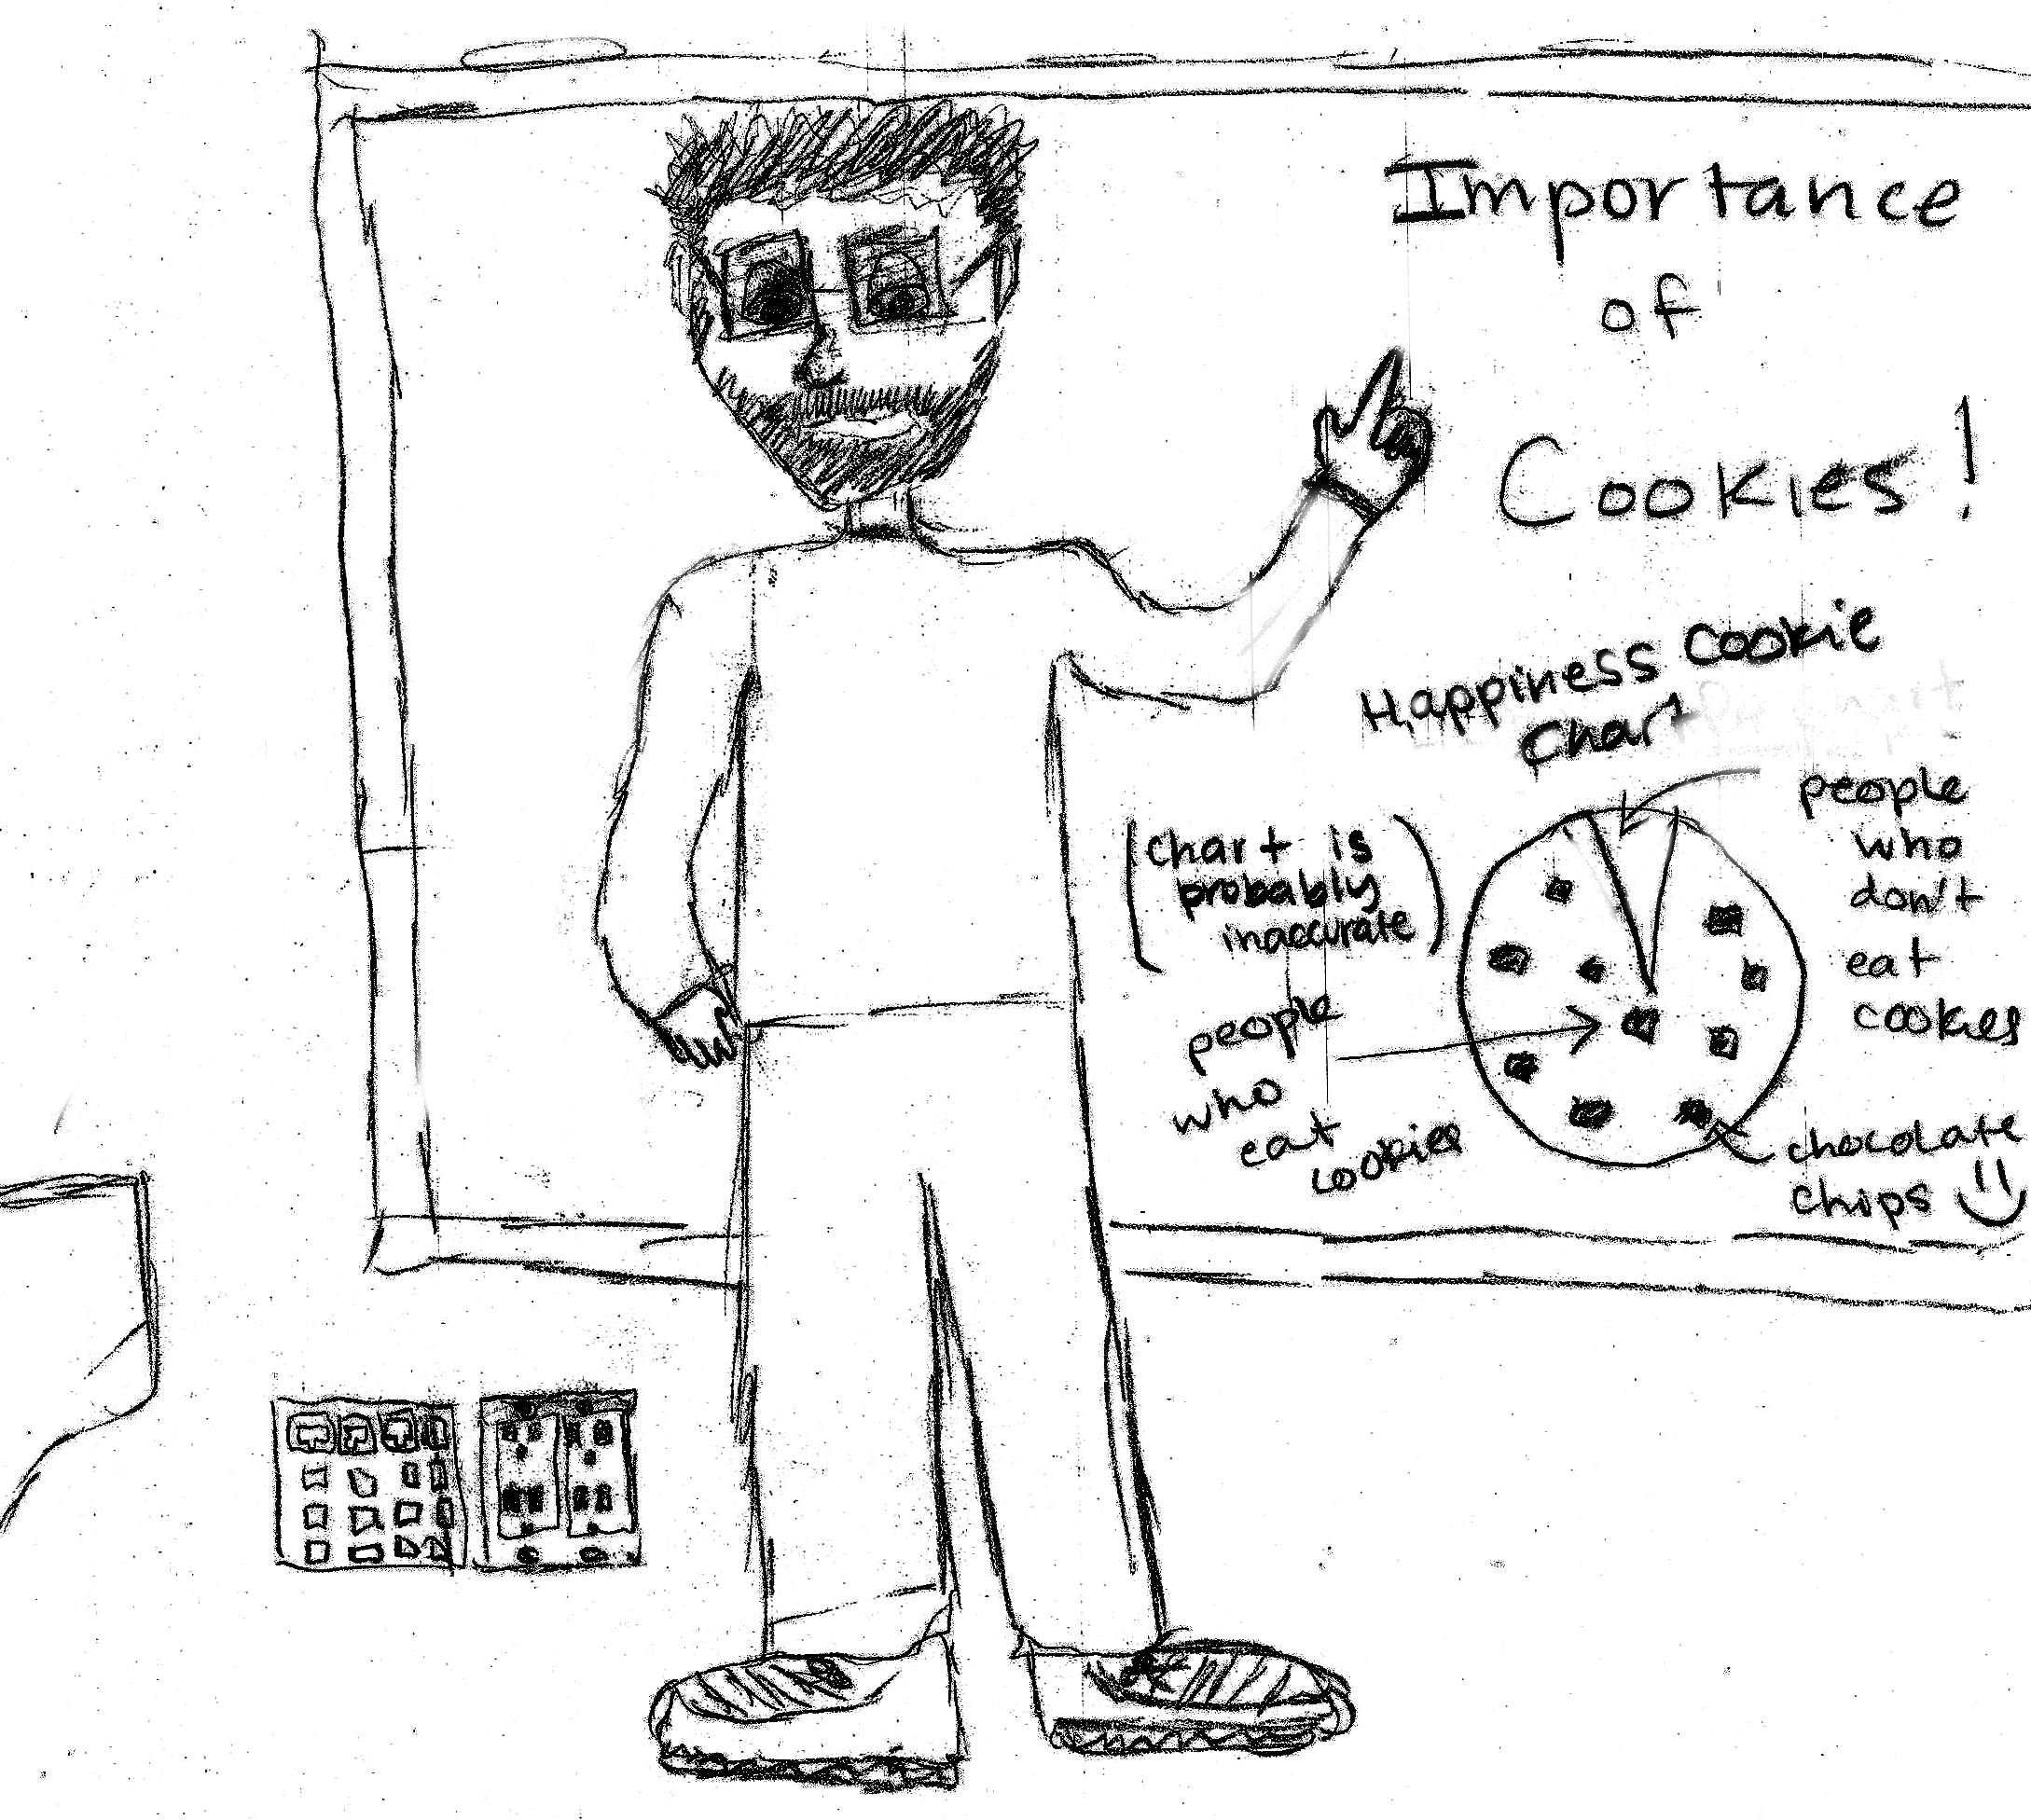 Importance
of
Cookies!
Happiness Cookie
Chart
(chart is
probably
inaccurate)
people
who
don't
eat
cookies
people
who
eat
cookies
chocolate
chips